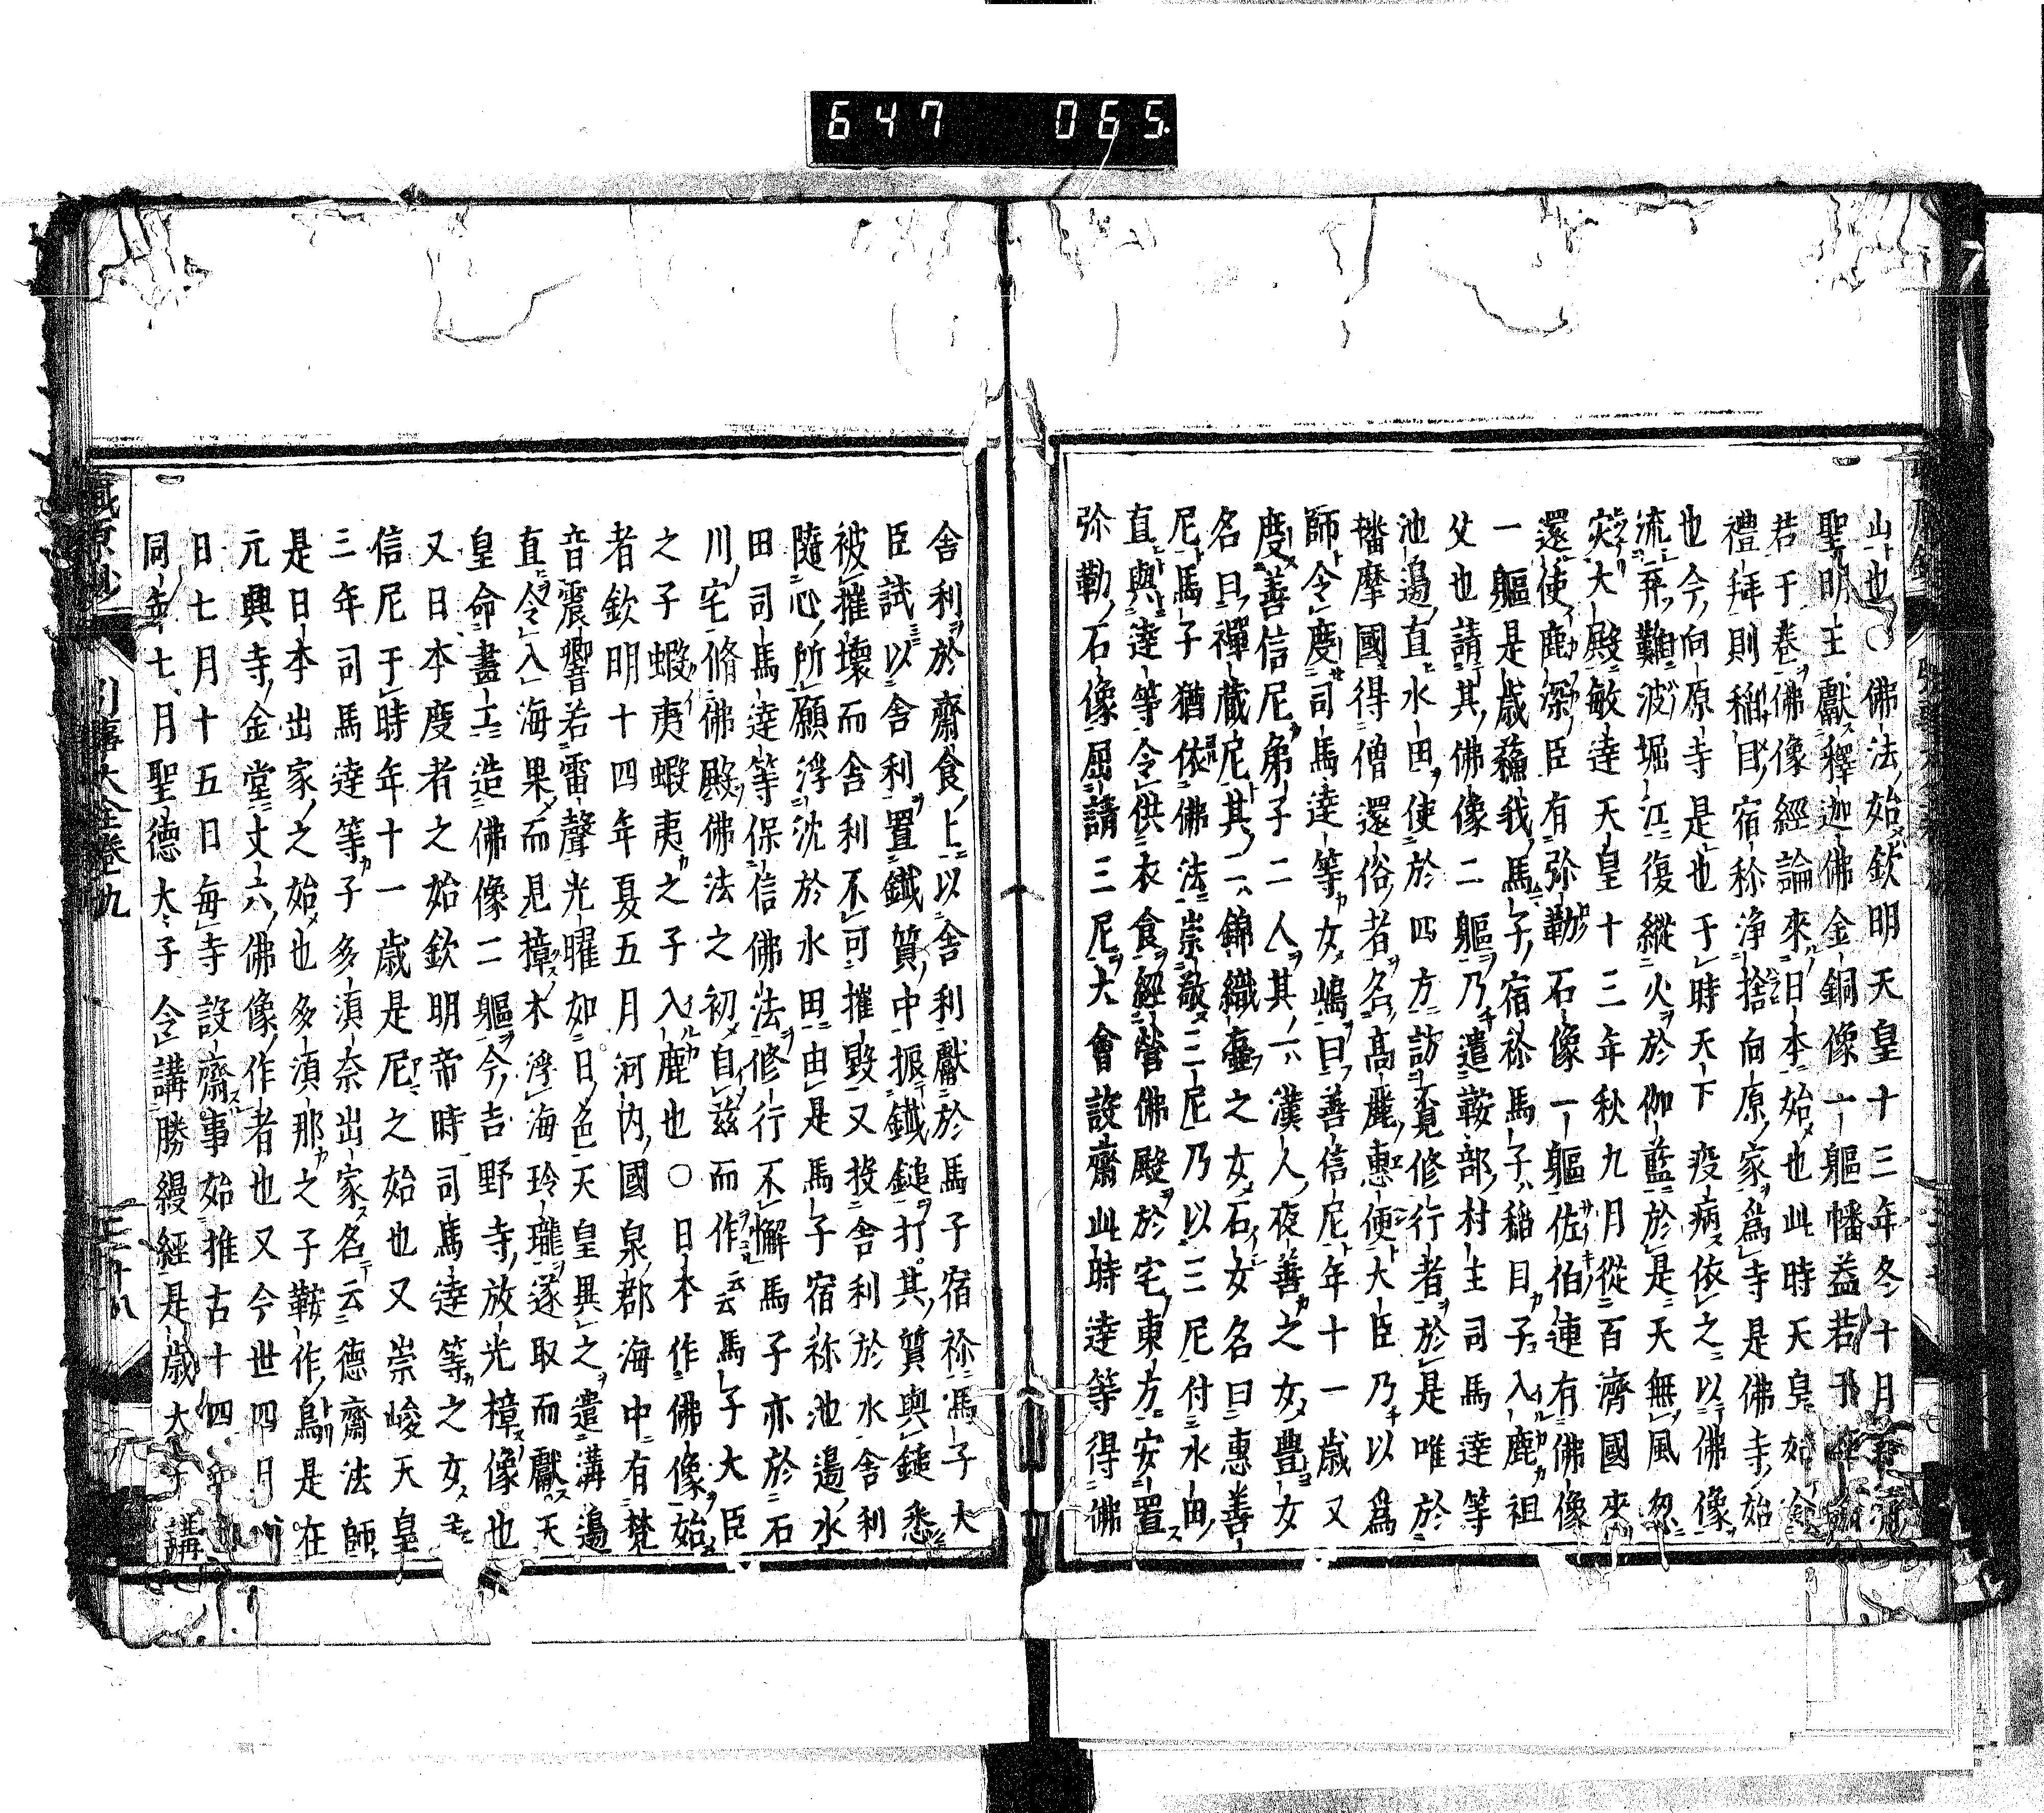 647 065
山也○佛法始欽明天皇十三年冬十月
聖明王獻釋迦佛金銅像一軀幡蓋若干
若干卷佛像經論來日本始也此時天皇始
禮拜則稲目宿祢淨捨向原家為寺是佛寺始
也今向原寺是也于時天下疫病依之以佛像
流弃難波堀江復縱火於伽藍於是天無風忽
灾大殿敏達天皇十三年秋九月從百濟國來
還使鹿深臣有弥勒石像一軀佐伯連有佛像
一軀是歳蘓我馬子宿祢馬子稲目子入鹿祖
父也請其佛像二軀乃遣鞍部村主司馬達等
池邊直水田使於四方訪覓修行者於是唯於
播摩國得僧還俗者名高麗惠便大臣乃以爲
師令度司馬達等女嶋曰善信尼年十一歳又
度善信尼弟子二人其一漢人夜善之女豊女
名曰禪蔵尼其二錦織壷之女石女名曰惠善
尼馬子猶依佛法崇敬三尼乃以三尼付水田
直與達等令供衣食經營佛殿於宅東方安置
弥勒石像屈請三尼大會設齋此時達等得佛
舎利於齋食上以舎利獻於馬子宿祢馬子大
臣試以舎利置鐵質中振鐵鎚打其質與鎚悉
被摧壊而舎利不可摧毀又投舎利於水舎利
隨心所願浮沈於水田由是馬子宿祢池邊水
田司馬達等保信佛法修行不懈馬子亦於石
川宅脩佛殿佛法之初自茲而作云云馬子大臣
之子蝦夷蝦夷之子入鹿也○日本作佛像始
者欽明十四年夏五月河内國泉郡海中有梵
音震響若雷聲光曜如日色天皇異之遣溝邊
直令入海果而見樟木浮海玲瓏遂取而獻天
皇命畫工造佛像二軀今吉野寺放光樟像也
又日本度者之始欽明帝時司馬達等之女
信尼于時年十一歳是尼之始也又崇峻天皇
三年司馬達等子多湏奈出家名云德齋法師
是日本出家之始也多湏那之子鞍作鳥是在
元興寺金堂丈六佛像作者也又今世四月
日七月十五日每寺設齋事始推古十四年
同年七月聖德太子令講勝縵經是歳太子講
引事大全卷九